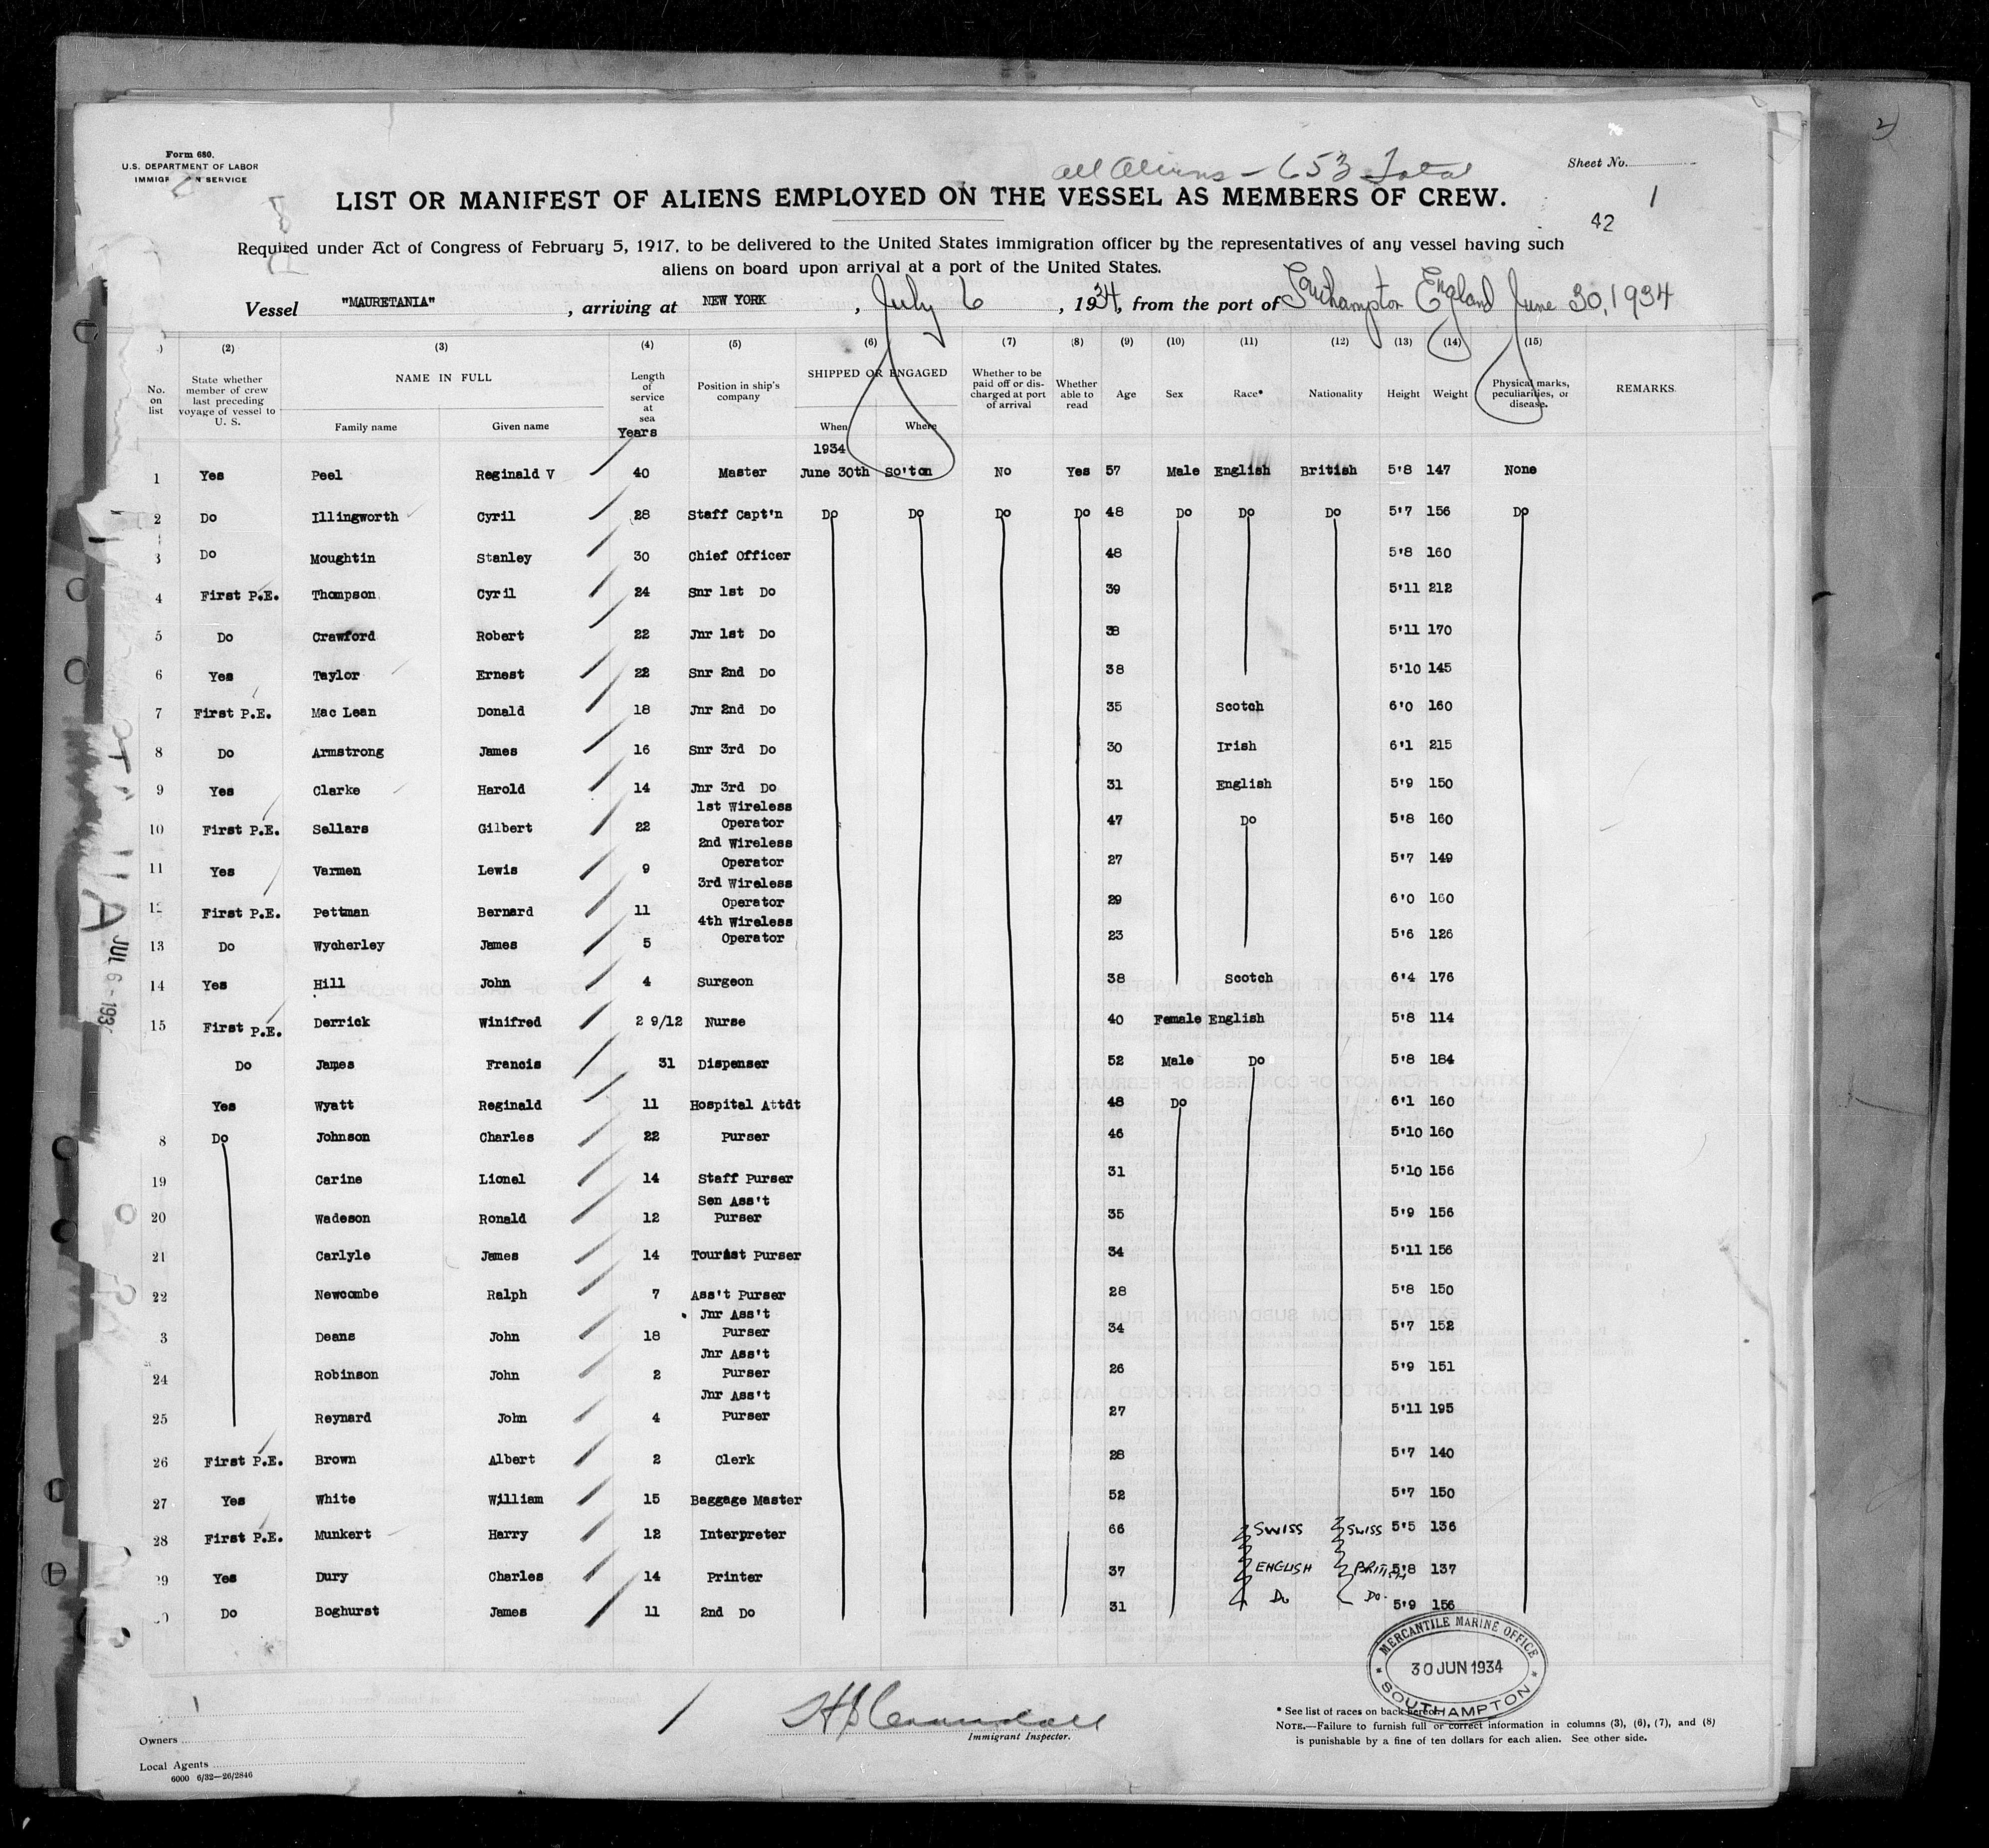 Form 680.
U.S. DEPARTMENT OF LABOR
SERVICE
all Aliens - 653 Total
Sheet No.
1
42
LIST OR MANIFEST OF ALIENS EMPLOYED ON THE VESSEL AS MEMBERS OF CREW.
Required under Act of Congress of February 5, 1917, to be delivered to the United States immigration officer by the representatives of any vessel having such
aliens on board upon arrival at a port of the United States.
Vessel "MAURETANIA", arriving at NEW YORK, July 6, 1934, from the port of Southampton England June 30, 1934
(2) (3) (4) (5) (6) (7) (8) (9) (10) (11) (12) (13) (14) (15)
No. on list State whether member of crew last preceding voyage of vessel to U. S. NAME IN FULL Family name Given name Length of service at sea Years Position in ship's company SHIPPED OR ENGAGED When Where Whether to be paid off or discharged at port of arrival Whether able to read Age Sex Race* Nationality Height Weight Physical marks, peculiarities, or disease. REMARKS.
1934
1 Yes Peel Reginald V 40 Master June 30th So'ton No Yes 57 Male English British 5'8 147 None
2 Do Illingworth Cyril 28 Staff Capt'n Do Do Do Do 48 Do Do Do 5'7 156 Do
3 Do Moughtin Stanley 30 Chief Officer 48 5'8 160
4 First P.E. Thompson Cyril 24 Snr 1st Do 39 5'11 212
5 Do Crawford Robert 22 Jnr 1st Do 38 5'11 170
6 Yes Taylor Ernest 22 Snr 2nd Do 38 5'10 145
7 First P.E. Mac Lean Donald 18 Jnr 2nd Do 35 Scotch 6'0 160
8 Do Armstrong James 16 Snr 3rd Do 30 Irish 6'1 215
9 Yes Clarke Harold 14 Jnr 3rd Do 31 English 5'9 150
10 First P.E. Sellars Gilbert 22 1st Wireless Operator 47 Do 5'8 160
11 Yes Varmen Lewis 9 2nd Wireless Operator 27 5'7 149
12 First P.E. Pettman Bernard 11 3rd Wireless Operator 29 6'0 160
13 Do Wycherley James 5 4th Wireless Operator 23 5'6 126
14 Yes Hill John 4 Surgeon 38 Scotch 6'4 176
15 First P.E. Derrick Winifred 2 9/12 Nurse 40 Female English 5'8 114
Do James Francis 31 Dispenser 52 Male Do 5'8 184
Yes Wyatt Reginald 11 Hospital Attdt 48 Do 6'1 160
8 Do Johnson Charles 22 Purser 46 5'10 160
19 Carine Lionel 14 Staff Purser 31 5'10 156
20 Wadeson Ronald 12 Sen Ass't Purser 35 5'9 156
21 Carlyle James 14 Tourist Purser 34 5'11 156
22 Newcombe Ralph 7 Ass't Purser 28 5'8 150
3 Deans John 18 Jnr Ass't Purser 34 5'7 152
24 Robinson John 2 Jnr Ass't Purser 26 5'9 151
25 Reynard John 4 Jnr Ass't Purser 27 5'11 195
26 First P.E. Brown Albert 2 Clerk 28 5'7 140
27 Yes White William 15 Baggage Master 52 5'7 150
28 First P.E. Munkert Harry 12 Interpreter 66 SWISS SWISS 5'5 136
29 Yes Dury Charles 14 Printer 37 ENGLISH BRITISH 5'8 137
Do Boghurst James 11 2nd Do 31 Do Do 5'9 156
JUL 6 - 193
MERCANTILE MARINE OFFICE
30 JUN 1934
SOUTHAMPTON
Immigrant Inspector.
* See list of races on back hereof.
NOTE.—Failure to furnish full or correct information in columns (3), (6), (7), and (8)
is punishable by a fine of ten dollars for each alien. See other side.
Owners
Local Agents
6000 6/32—26/2846